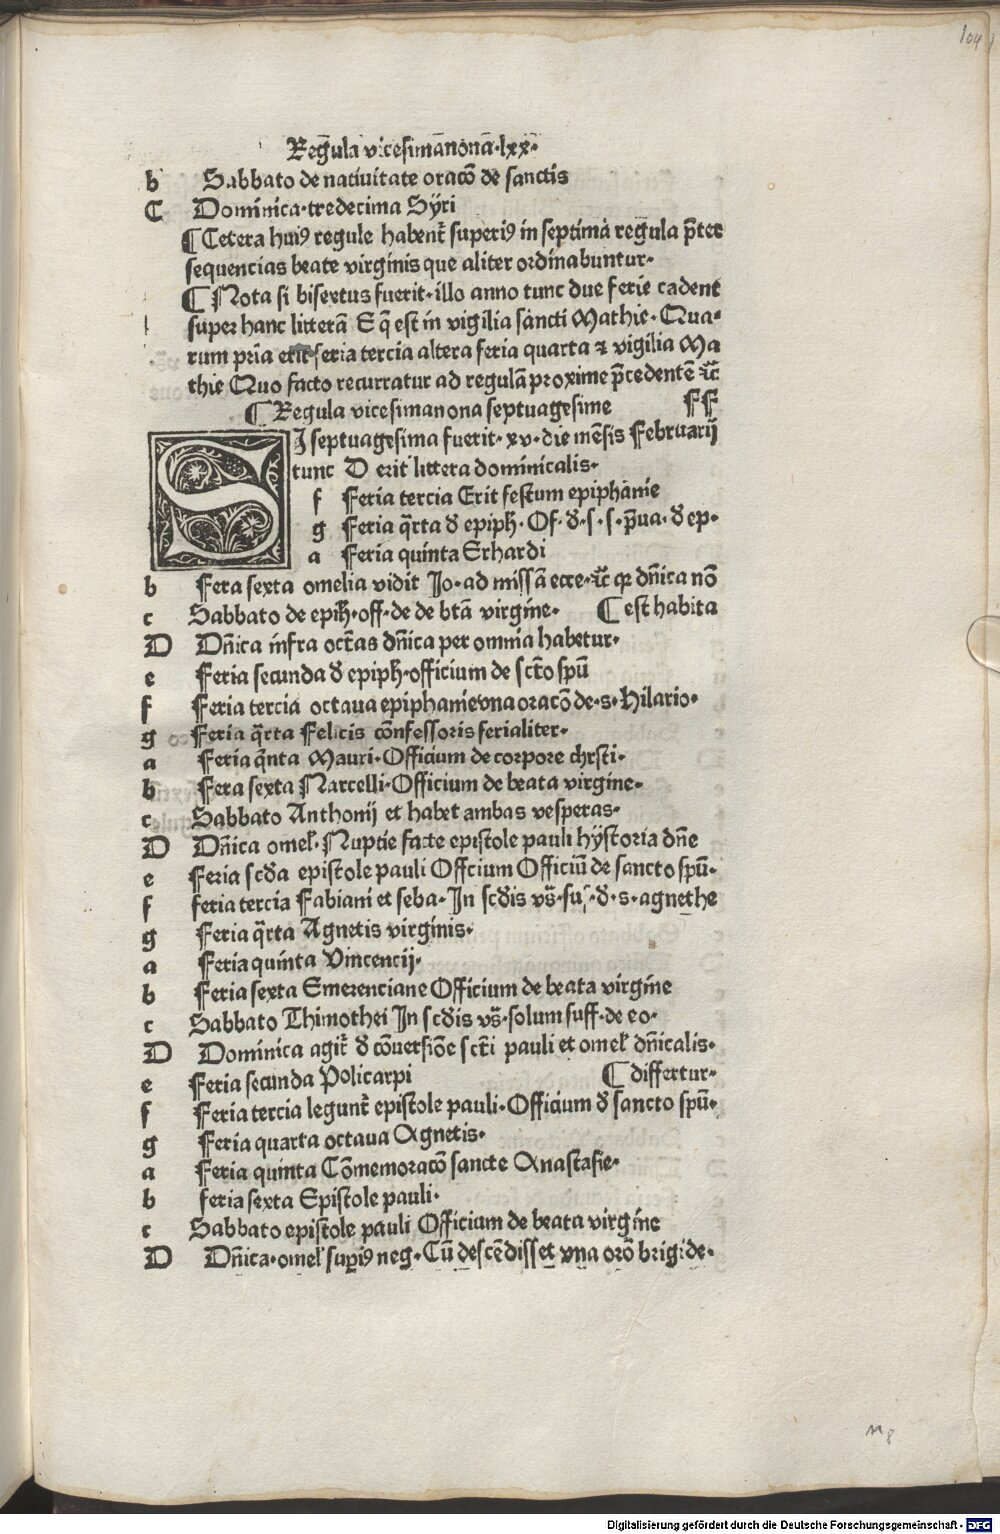 104
Regula vicesimanona·lxx·
b Sabbato de natiuitate oracō de sanctis
C Dominica·tredecima Syri
¶ Cetera huiꝰ regule habent᷑ superiꝰ in septima regula p̄ter
sequencias beate virginis que aliter ordinabuntur·
¶ Nota si bisextus fuerit·illo anno tunc due ferie cadent
super hanc litterā E q̄ est in vigilia sancti Mathie·Qua⸗
rum pria erit feria tercia altera feria quarta ⁊ vigilia Ma
thie Quo facto recurratur ad regulā proxime p̄cedentē ⁊c̄
¶ Regula vicesimanona septuagesime FF
SI septuagesima fuerit·xv·die mēsis Februarij
tunc D erit littera dominicalis·
f Feria tercia Erit festum epiphanie
g Feria q̄rta ꝺ epiph·Of·ꝺ·s·s·p̄ua·ꝺ ep·
a Feria quinta Erhardi
b Fera sexta omelia vidit Jo·ad missā ecce·⁊c̄ qꝛ dn̄ica nō
c Sabbato de epiph·off·de de btā virgine· ¶ est habita
D Dn̄ica infra oct̄as dn̄ica per omnia habetur·
e Feria secunda ꝺ epiph·officium de sct̄o spū
f Feria tercia octaua epiphanie vna oracō de·s·Hilario·
g Feria q̄rta Felicis cōnfessoris ferialiter·
a Feria q̄nta Mauri·Officium de corpore chrsti·
b Fera sexta Marcelli·Officium de beata virgine·
c Sabbato Anthonij et habet ambas vesperas·
D Dn̄ica omel̕·Nuptie facte epistole pauli hystoria dn̄e
e Feria scꝺa epistole pauli Offcium Officiū de sancto spū·
f feria tercia Fabiani et seba·In scꝺis vs̄·suf·ꝺ·s·agnethe
g Feria q̄rta Agnetis virginis·
a Feria quinta Vincencij·
b Feria sexta Emerenciane Officium de beata virgine
c Sabbato Thimothei In scꝺis vs̄·solum suff·de eo·
D Dominica agit᷑ ꝺ cōuersiōe sct̄i pauli et omel̕ dn̄icalis·
e Feria secunda Policarpi ¶ differtur·
f Feria tercia legunt᷑ epistole pauli·Officium ꝺ sancto spū·
g Feria quarta octaua Agnetis·
a Feria quinta Cōmemoracō sancte Anastasie·
b feria sexta Epistole pauli·
c Sabbato epistole pauli Officium de beata virgine
D Dn̄ica·omel̕ supiꝰ neg·Cū descēdisset vna orō brigide·
m 8
Digitalisierung gefördert durch die Deutsche Forschungsgemeinschaft - DFG